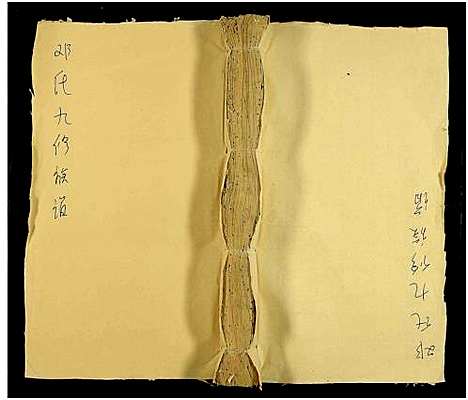 邓氏九修族谱
邓氏九修族谱